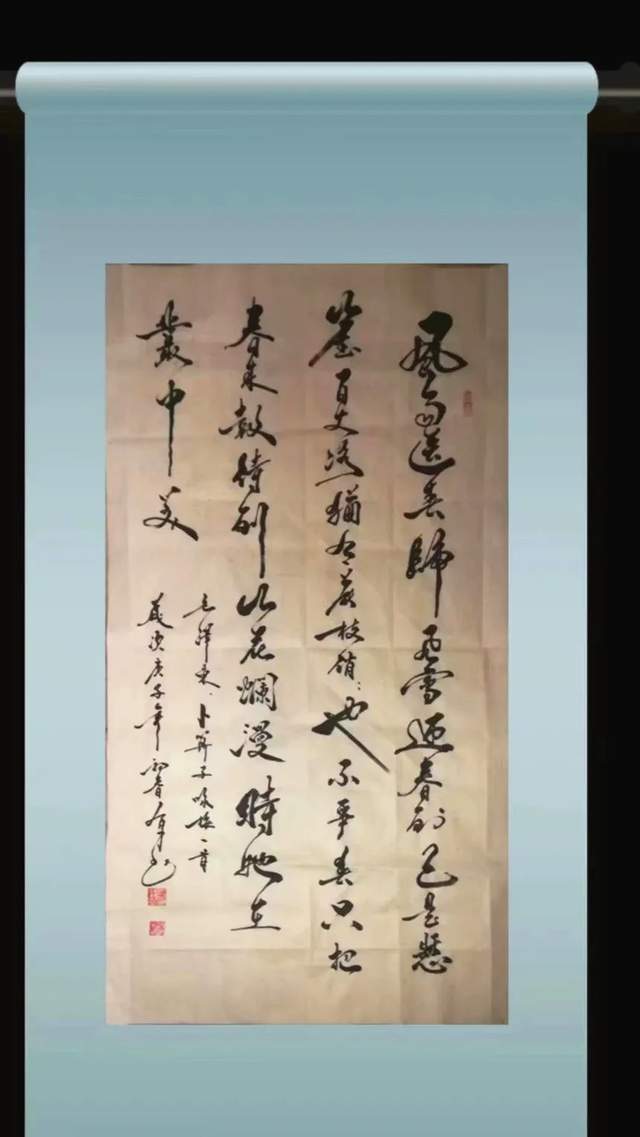 風雨送春歸飛雪迎春到已是懸
崖百丈冰猶有花枝俏〻也不爭春只把
春來報待到山花爛漫時她在
叢中笑
毛澤東卜算子咏梅一首
歲次庚子年初春